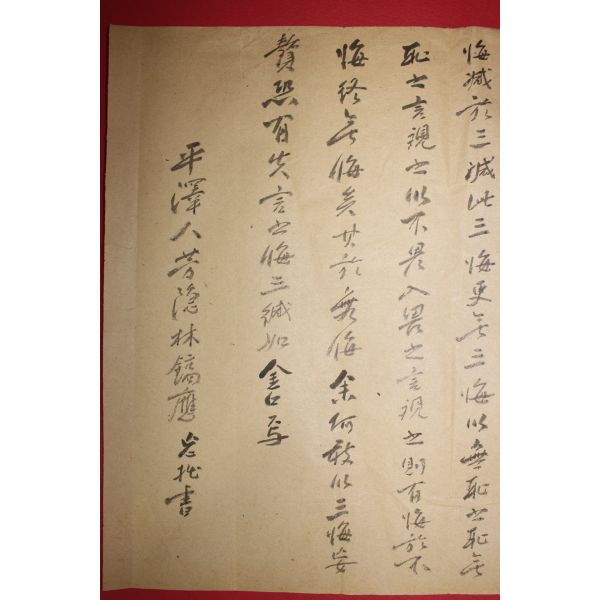 悔減於三緘此三悔更無三悔以無恥之恥無
恥之言視之以不畏入畏之言視之則有悔於不
悔終無悔矣其於無悔余何敢以三悔妄
贅恐有失言之悔三緘如金口焉
平澤人芳隱林鎬應 拙書